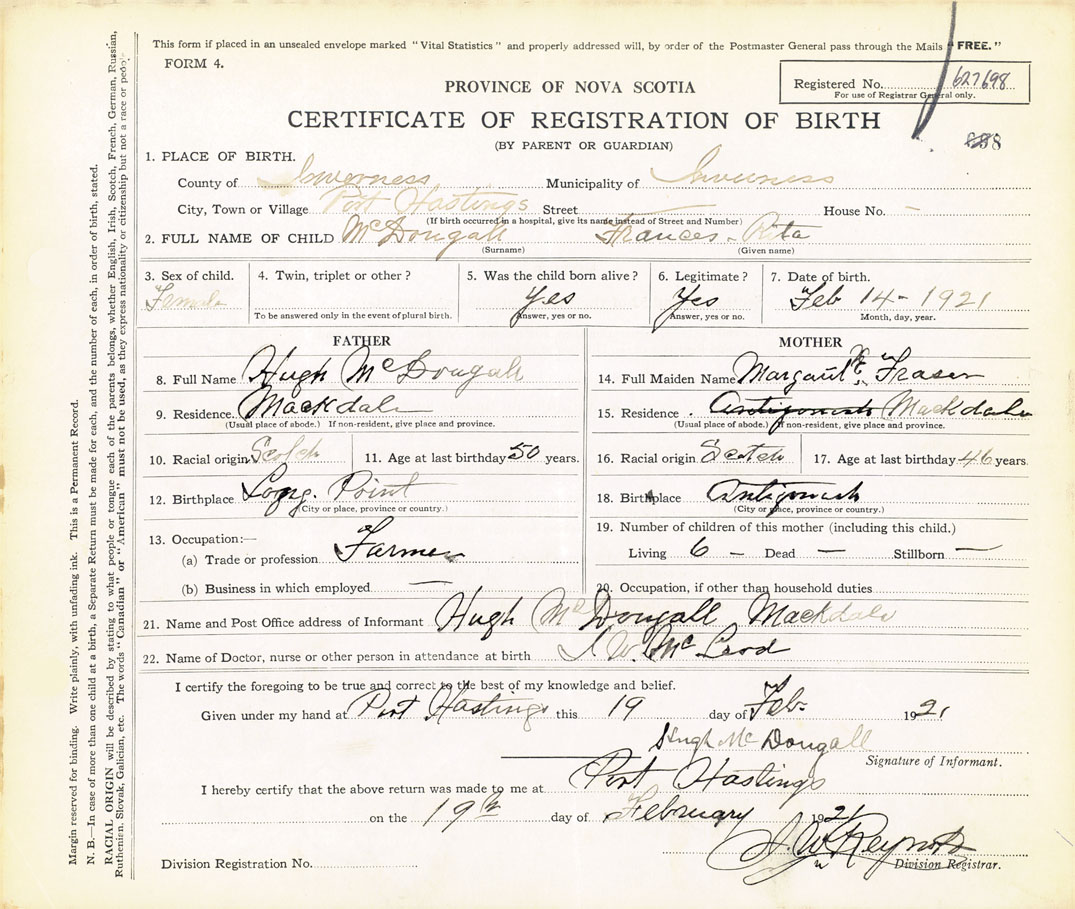 This form if placed in an unsealed envelope marked "Vital Statistics" and properly addressed will, by order of the Postmaster General pass through the Mails "FREE."
FORM 4.
Registered No. 627698
For use of Registrar General only.
PROVINCE OF NOVA SCOTIA
CERTIFICATE OF REGISTRATION OF BIRTH
(BY PARENT OR GUARDIAN)
1. PLACE OF BIRTH.
County of Inverness Municipality of Inverness
City, Town or Village Port Hastings Street — House No. —
(If birth occurred in a hospital, give its name instead of Street and Number)
2. FULL NAME OF CHILD McDougall Frances Rita
(Surname) (Given name)
3. Sex of child. 4. Twin, triplet or other? 5. Was the child born alive? 6. Legitimate? 7. Date of birth.
Female Yes Yes Feb 14 - 1921
To be answered only in the event of plural birth. Answer, yes or no. Answer, yes or no. Month, day, year.
FATHER
8. Full Name Hugh McDougall
9. Residence. Mackdale
(Usual place of abode.) If non-resident, give place and province.
10. Racial origin Scotch 11. Age at last birthday 50 years.
12. Birthplace Long Point
(City or place, province or country.)
13. Occupation:—
(a) Trade or profession Farmer
(b) Business in which employed —
MOTHER
14. Full Maiden Name Margaret Fraser
15. Residence . Antigonish Mackdale
(Usual place of abode.) If non-resident, give place and province.
16. Racial origin Scotch 17. Age at last birthday 46 years.
18. Birthplace Antigonish
(City or place, province or country.)
19. Number of children of this mother (including this child.)
Living 6 — Dead — Stillborn —
20. Occupation, if other than household duties
21. Name and Post Office address of Informant Hugh McDougall Mackdale
22. Name of Doctor, nurse or other person in attendance at birth McLeod
I certify the foregoing to be true and correct to the best of my knowledge and belief.
Given under my hand at Port Hastings this 19 day of Feb. 1921
Hugh McDougall
Signature of Informant.
I hereby certify that the above return was made to me at Port Hastings
on the 19th day of February 1921
Division Registration No. Division Registrar.
Margin reserved for binding. Write plainly, with unfading ink. This is a Permanent Record.
N. B.—In case of more than one child at a birth, a Separate Return must be made for each, and the number of each, in order of birth, stated.
RACIAL ORIGIN will be described by stating to what people or tongue each of the parents belongs, whether English, Irish, Scotch, French, German, Russian,
Ruthenian, Slovak, Galician, etc. The words "Canadian" or "American" must not be used, as they express nationality or citizenship but not a race or